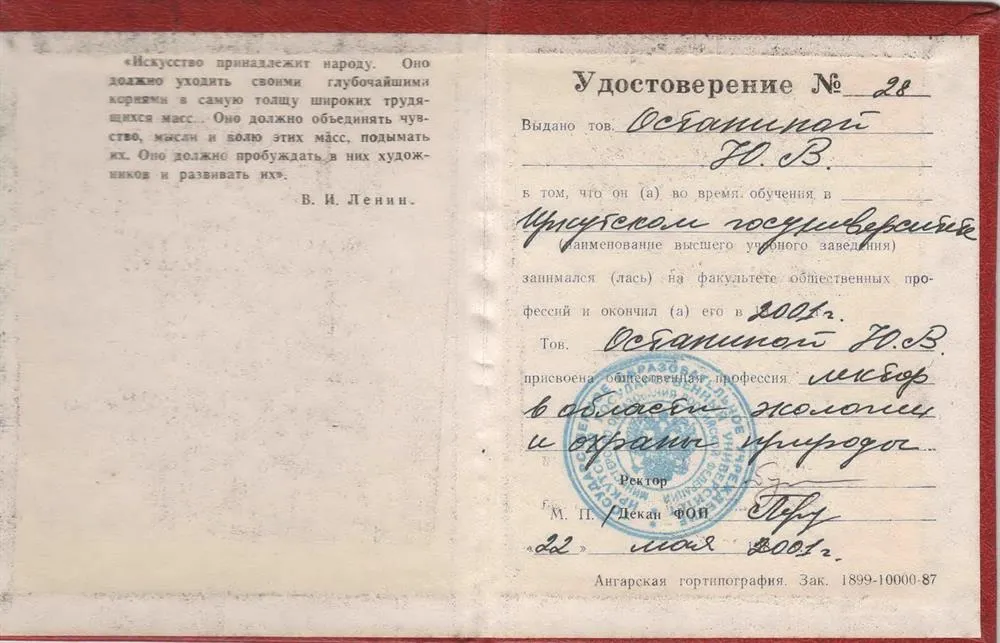 «Искусство принадлежит народу. Оно
должно уходить своими глубочайшими
корнями в самую толщу широких трудя-
щихся масс... Оно должно объединять чув-
ство, мысли и волю этих масс, подымать
их. Оно должно пробуждать в них худож-
ников и развивать их».
В. И. Ленин.
Удостоверение № 28
Выдано тов. Останиной
Ю. В.
в том, что он (а) во время обучения в
Иркутском госуниверситете
(наименование высшего учебного заведения)
занимался (лась) на факультете общественных про-
фессий и окончил (а) его в 2001 г.
Тов. Останиной Ю.В.
присвоена общественная профессия лектор
в области экологии
и охраны природы
Ректор
М. П. Декан ФОП
«22» мая 2001 г.
Ангарская гортипография. Зак. 1899-10000-87